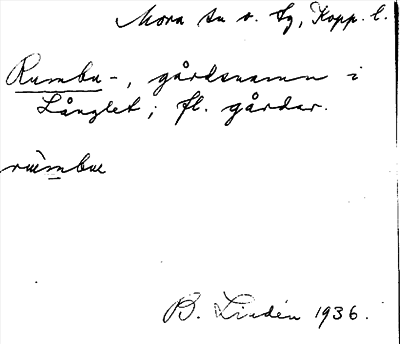 Mora sn o. tg, Kopp. l.
Rumbu-, gårdsnamn i
Långlet; fl. gårdar.
B. Lindén 1936.